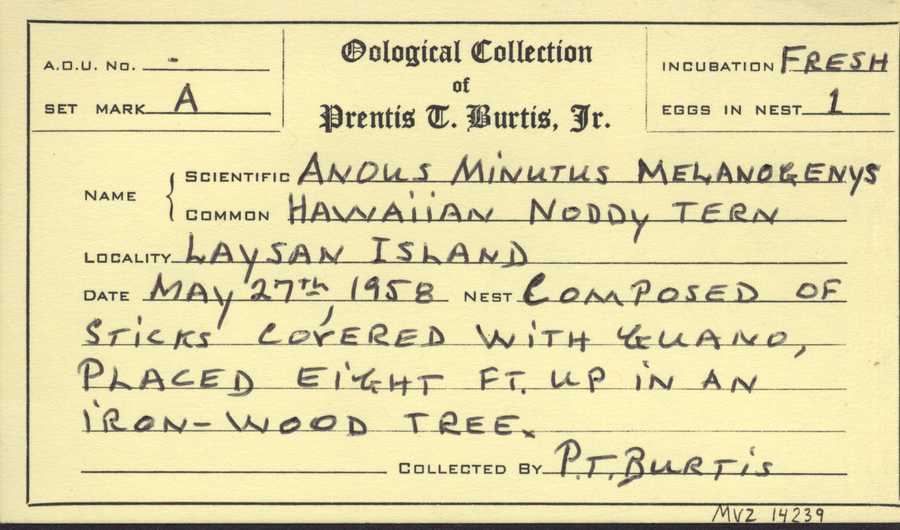 Oological Collection
of
Prentis T. Burtis, Jr.
A.O.U. No. -
SET MARK A
INCUBATION FRESH
EGGS IN NEST 1
NAME
SCIENTIFIC ANOUS MINUTUS MELANOGENYS
COMMON HAWAIIAN NODDY TERN
LOCALITY LAYSAN ISLAND
DATE MAY 27th, 1958 NEST COMPOSED OF
STICKS COVERED WITH GUANO,
PLACED EIGHT FT. UP IN AN
IRON-WOOD TREE.
COLLECTED BY P.T. BURTIS
MVZ 14239